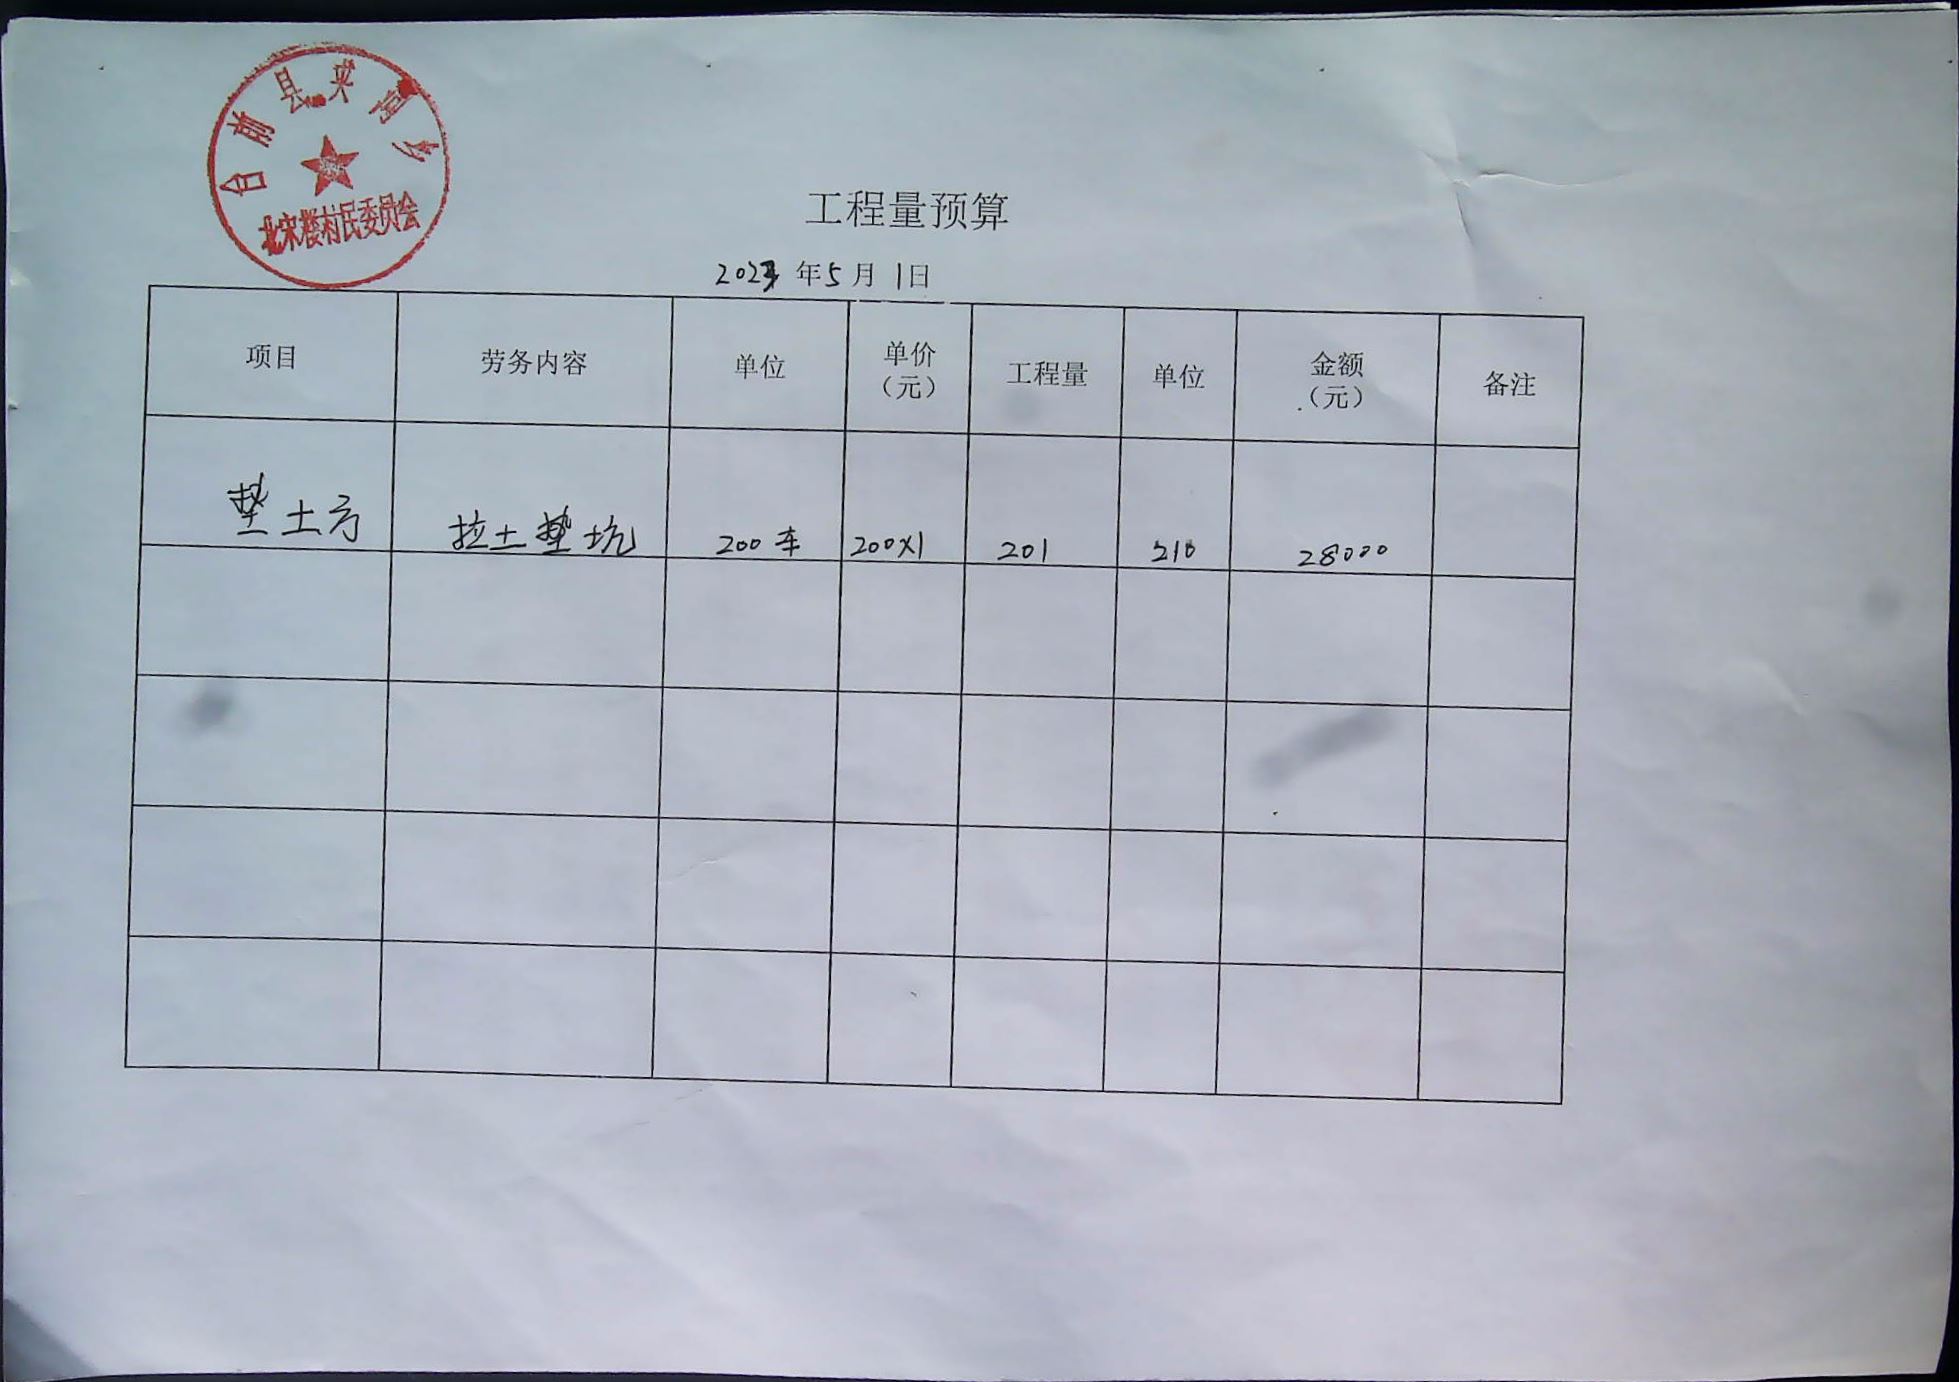 台前县夹河乡
北宋楼村民委员会
工程量预算
2023年5月1日
项目 劳务内容 单位 单价（元） 工程量 单位 金额（元） 备注
垫土方 拉土垫坑 200车 200X1 201 210 28000